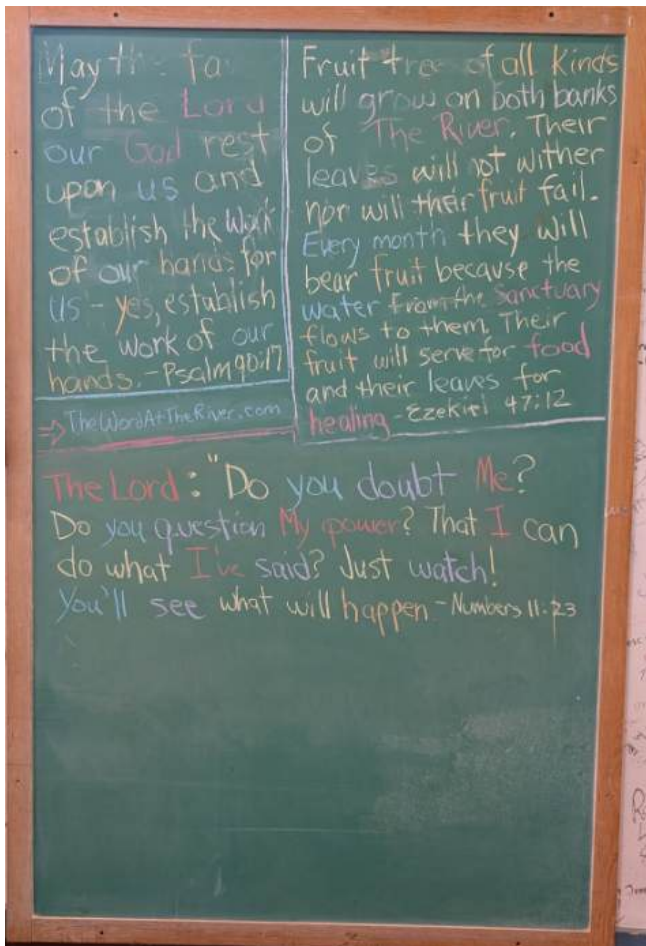 May the fa
of the Lord
our God rest
upon us and
establish the work
of our hands for
us - yes, establish
the work of our
hands. - Psalm 90:17
⇒ TheWordAtTheRiver.com
Fruit tree of all kinds
will grow on both banks
of The River. Their
leaves will not wither
nor will their fruit fail.
Every month they will
bear fruit because the
water from the Sanctuary
flows to them. Their
fruit will serve for food
and their leaves for
healing - Ezekiel 47:12
The Lord: "Do you doubt Me?
Do you question My power? That I can
do what I've said? Just watch!
You'll see what will happen - Numbers 11:23